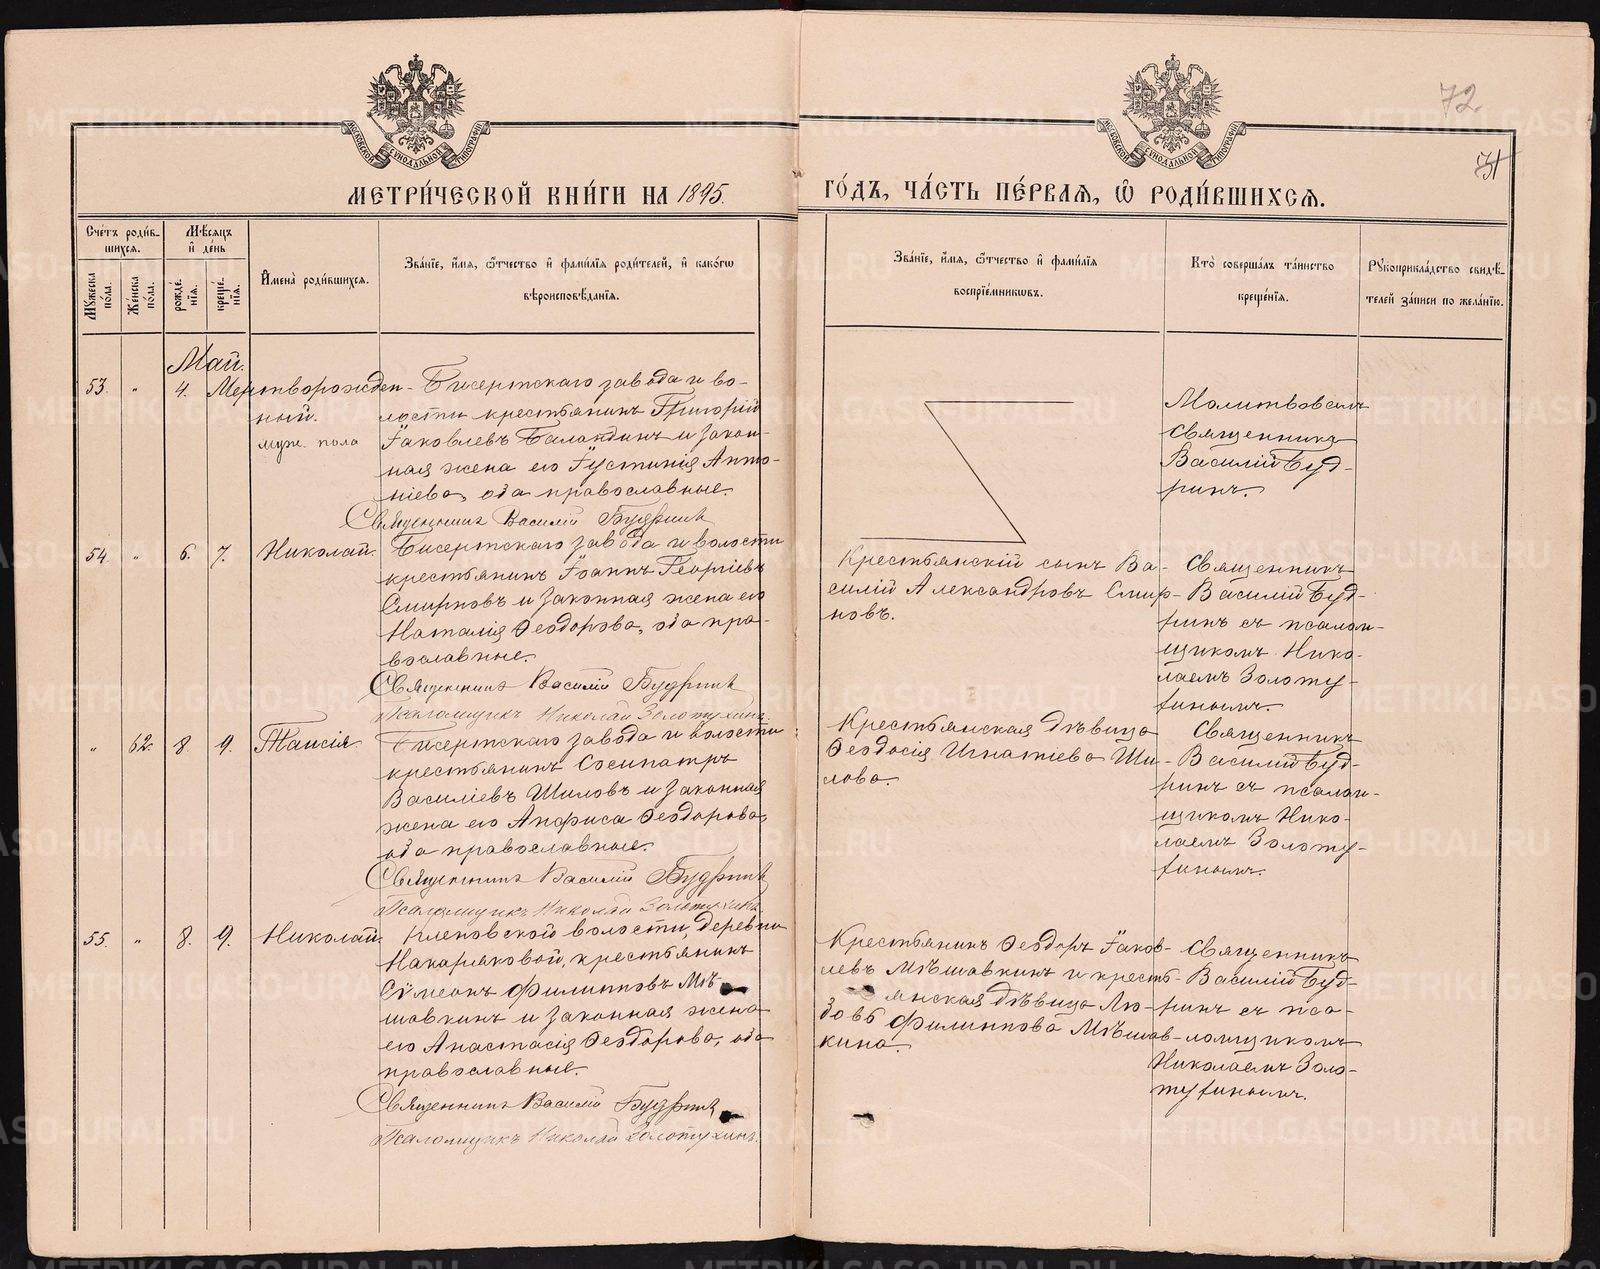 72
71
МОСКОВСКОЙ СѴНОДАЛЬНОЙ ТИПОГРАФІИ
МОСКОВСКОЙ СѴНОДАЛЬНОЙ ТИПОГРАФІИ
МЕТРИ́ЧЕСКОЙ КНИ́ГИ НА 1895.
ГО́ДЪ, ЧА́СТЬ ПЕ́РВАЯ, Ѡ҆ РОДИ́ВШИХСЯ.
Сче́тъ роди́в-
шихся.
Мѣсяцъ
и҆ де́нь
Мꙋ́жеска
по́ла.
Же́нска
по́ла.
рожде́-
нїя.
креще́-
нїя.
И҆мена̀ роди́вшихся.
Зва́нїе, и҆́мя, ѻ҆́тчество и҆ фами́лїя роди́телей, и҆ како́гѡ
вѣроисповѣ́данїя.
Зва́нїе, и҆́мя, ѻ҆́тчество и҆ фами́лїя
воспрїе́мникѡвъ.
Кто̀ соверша́лъ та́инство
креще́нїя.
Рꙋкоприкла́дство свидѣ́-
телей за́писи по жела́нїю.
Май.
53. „ 4. Мертворожден-
ный.
муж. пола
Бисертскаго завода и во-
лости крестьянинъ Григорій
Іаковлевъ Баландинъ и закон-
ная жена его Іустинія Анто-
ніева, оба православные.
Священникъ Василій Будринъ
Молитвовалъ
священникъ
Василій Буд-
ринъ.
54. „ 6. 7. Николай.
Бисертскаго завода и волости
крестьянинъ Іоаннъ Георгіевъ
Смирновъ и законная жена его
Наталія Ѳеодорова, оба пра-
вославные.
Священникъ Василій Будринъ
Псаломщикъ Николай Золотухинъ.
Крестьянскій сынъ Ва-
силій Александровъ Смир-
новъ.
Священникъ
Василій Буд-
ринъ съ псалом-
щикомъ Нико-
лаемъ Золоту-
хинымъ.
„ 62. 8. 9. Таисія.
Бисертскаго завода и волости
крестьянинъ Сосипатръ
Василіевъ Шиловъ и законная
жена его Анфиса Ѳеодорова,
оба православные.
Священникъ Василій Будринъ
Псаломщикъ Николай Золотухинъ
Крестьянская дѣвица
Ѳеодосія Игнатіева Ши-
лова.
Священникъ
Василій Буд-
ринъ съ псалом-
щикомъ Нико-
лаемъ Золоту-
хинымъ.
55. „ 8. 9. Николай.
Кленовской волости, деревни
Накаряковой, крестьянинъ
Сѵмеонъ Филипповъ Мѣ-
шавкинъ и законная жена
его Анастасія Ѳеодорова, оба
православные.
Священникъ Василій Будринъ
Псаломщикъ Николай Золотухинъ.
Крестьянинъ Ѳеодоръ Іаков-
левъ Мѣшавкинъ и кресть-
янская дѣвица Лю-
бовь Филиппова Мѣшав-
кина.
Священникъ
Василій Буд-
ринъ съ пса-
ломщикомъ
Николаемъ Золо-
тухинымъ.
METRIKI.GASO-URAL.RU